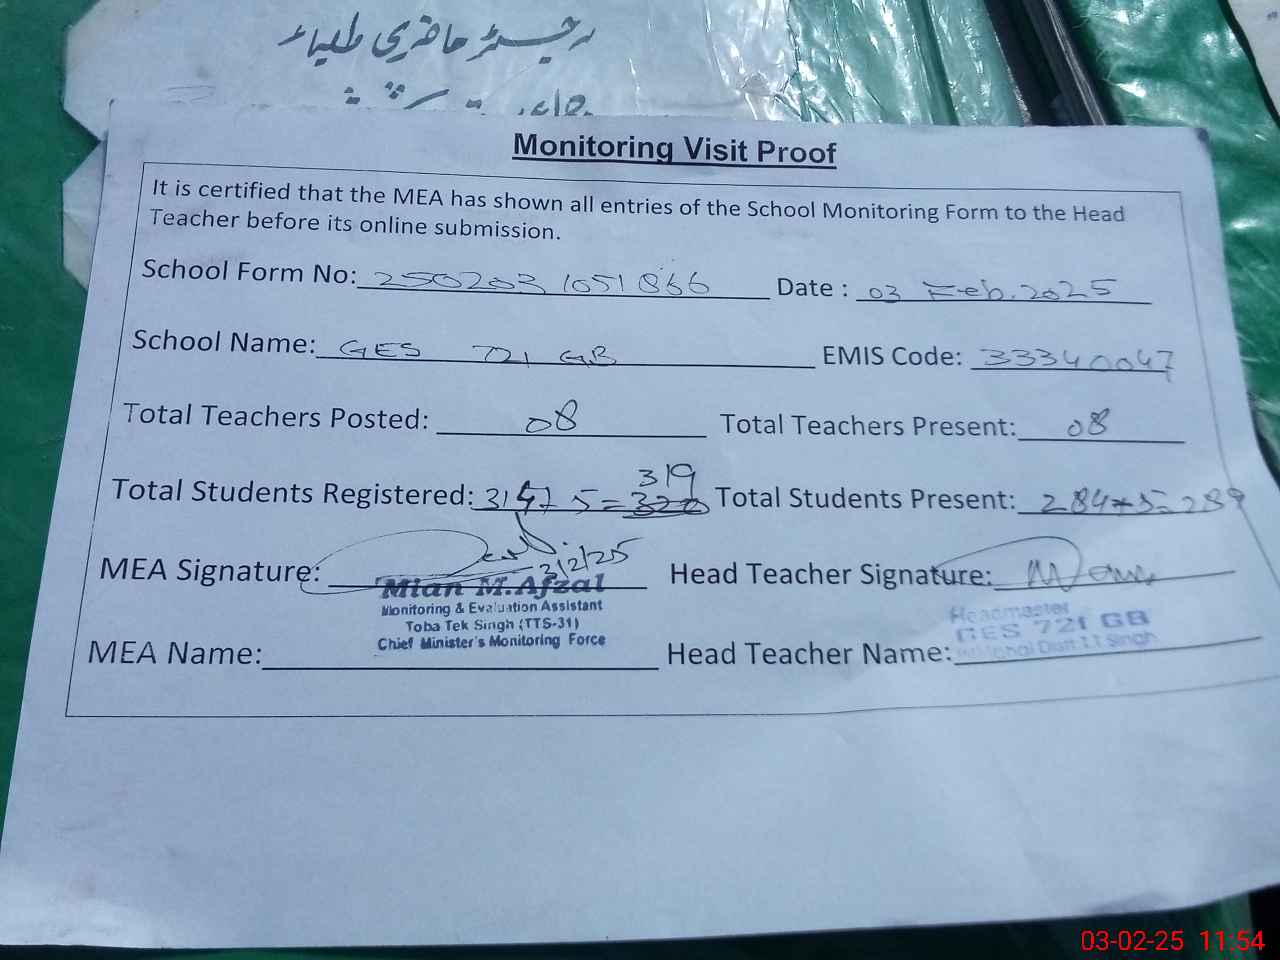 رجسٹر حاضری طلباء
Monitoring Visit Proof
It is certified that the MEA has shown all entries of the School Monitoring Form to the Head
Teacher before its online submission.
School Form No: 2502031051866 Date : 03 Feb. 2025
School Name: GES 721 GB EMIS Code: 33340047
Total Teachers Posted: 08 Total Teachers Present: 08
319
Total Students Registered: 314+5=320 Total Students Present: 284+5=289
MEA Signature: 3/2/25 Head Teacher Signature:
Mian M.Afzal
Monitoring & Evaluation Assistant
Toba Tek Singh (TTS-31)
Chief Minister's Monitoring Force
Headmaster
GES 721 GB
Distt T.T Singh
MEA Name: Head Teacher Name:
03-02-25 11:54